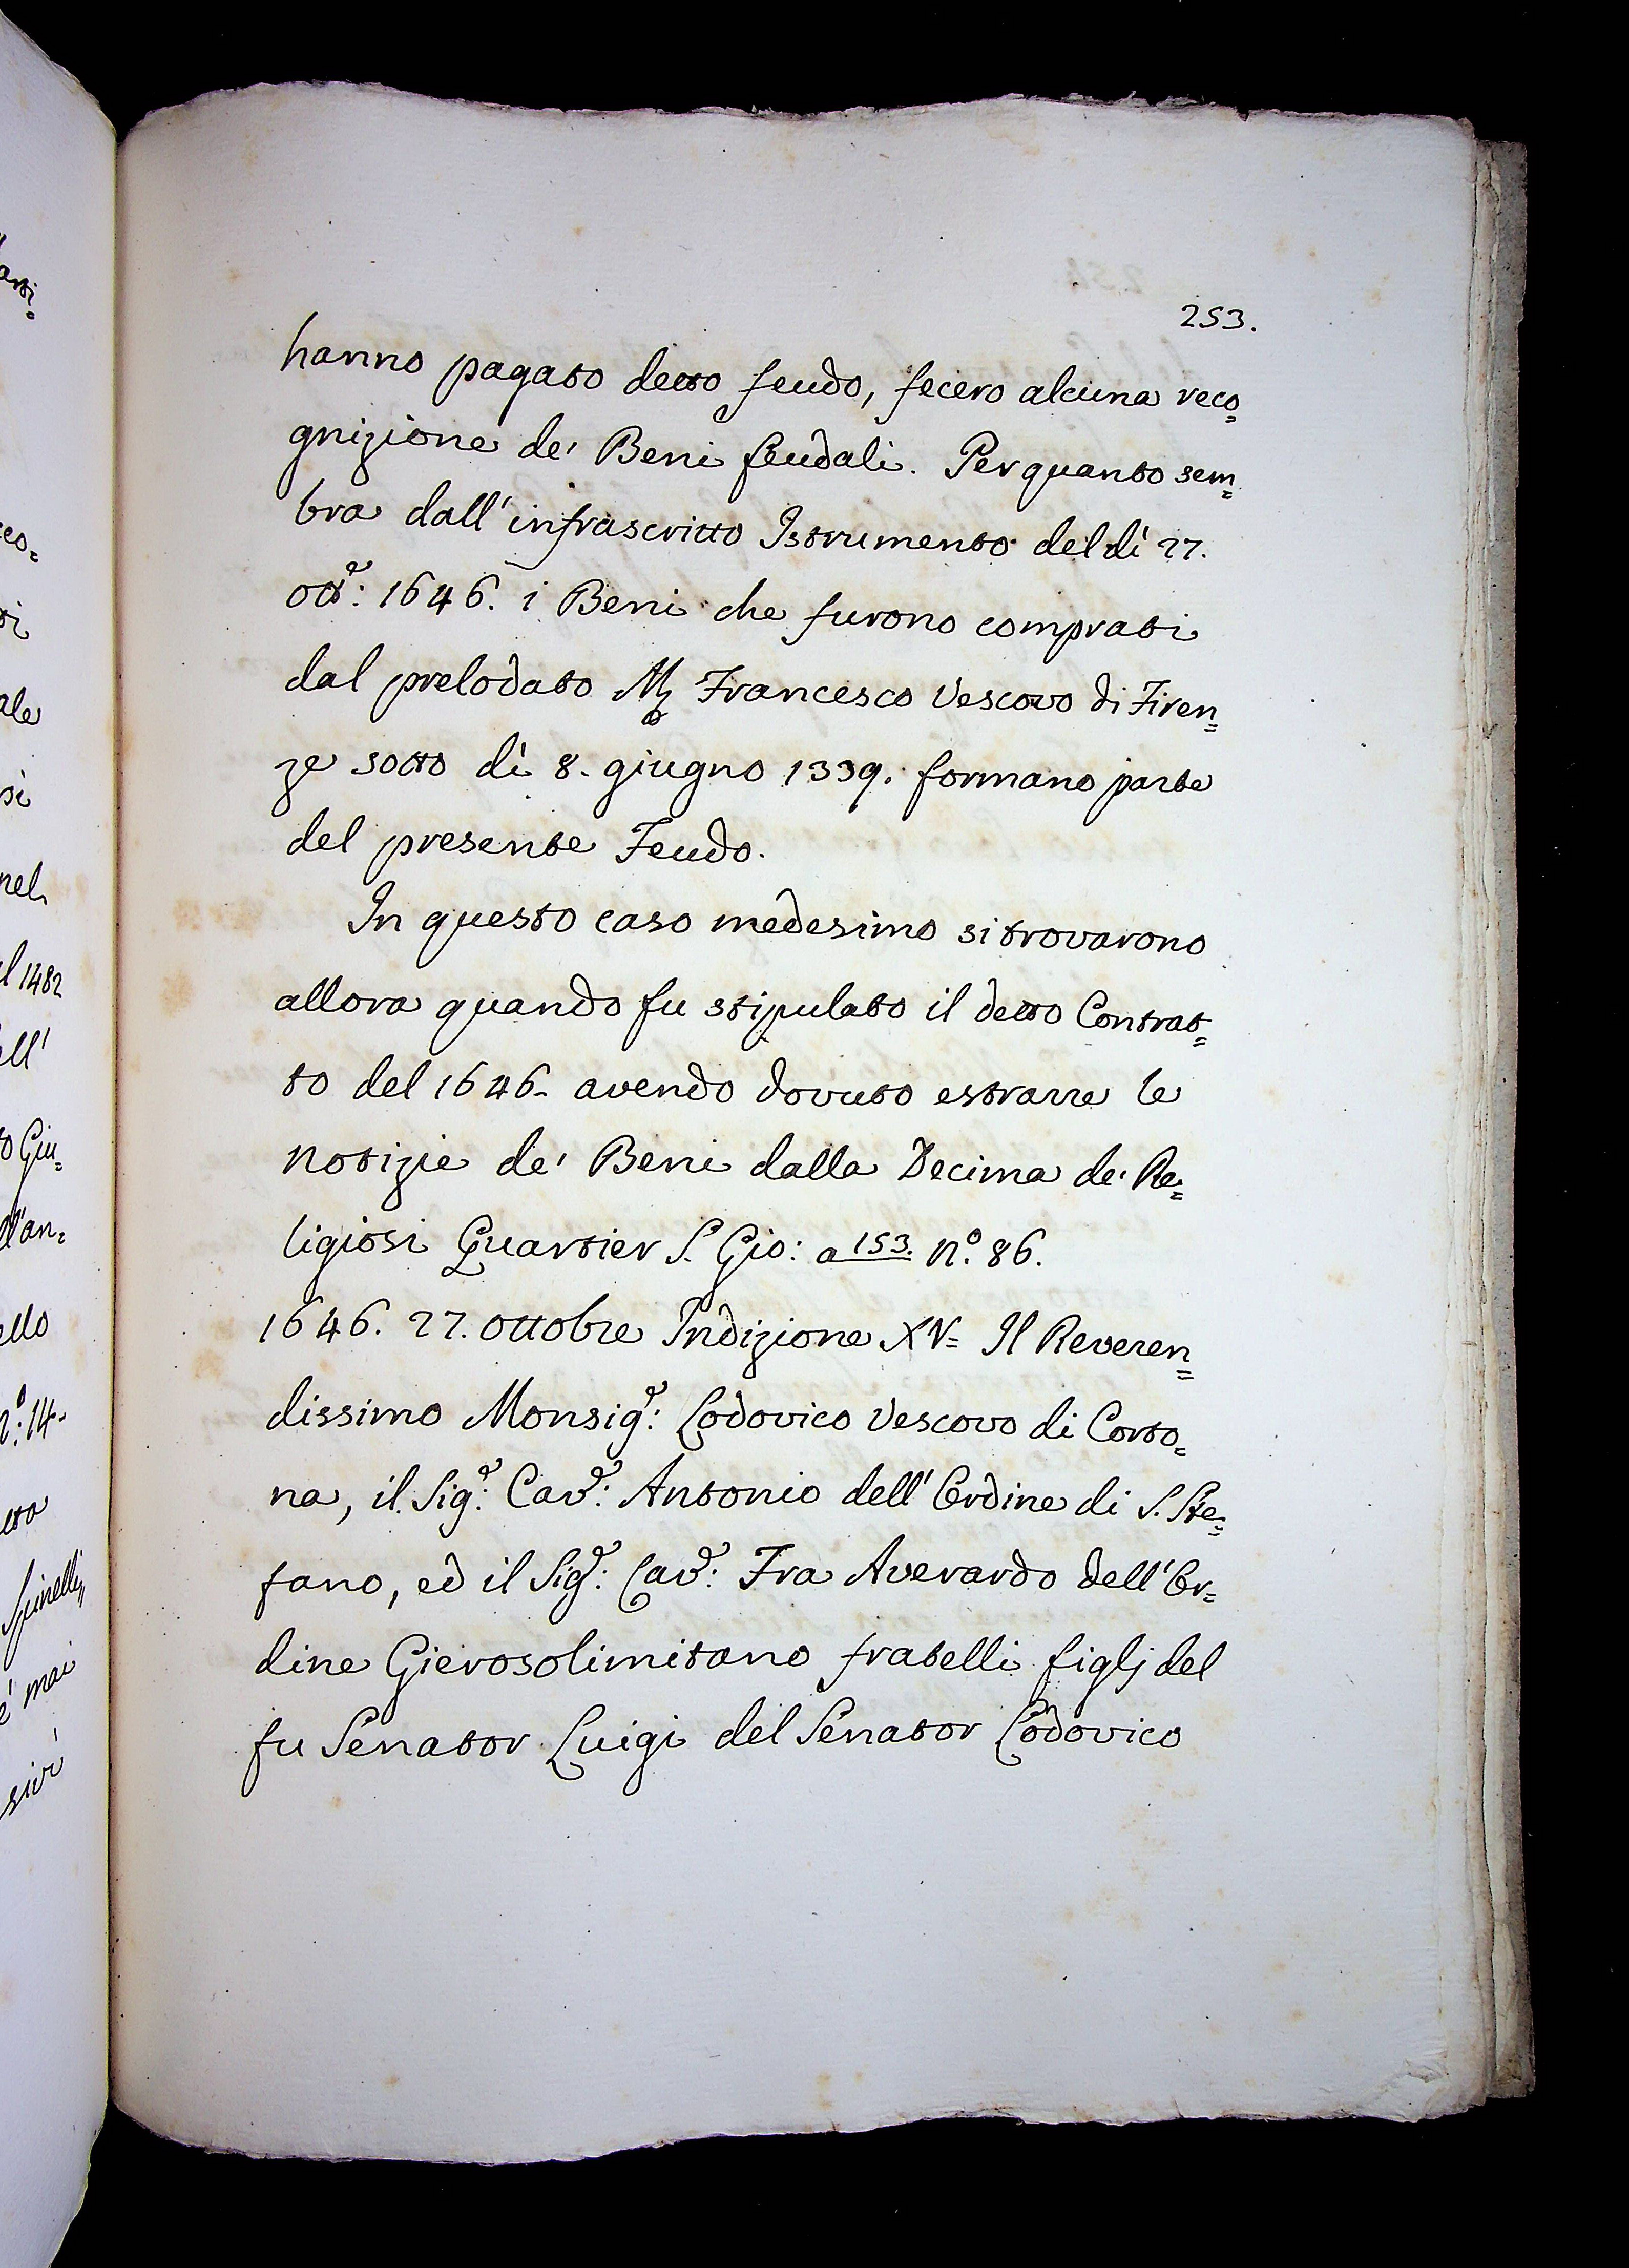 253.
hanno pagato detto feudo, fecero alcuna reco=
gnizione de' Beni feudali. Per quanto sem=
bra dall'infrascritto Istrumento del dì 27.
ott.e: 1646. i Beni che furono comprati
dal prelodato Francesco Vescovo di Firen=
ze sotto dì 8. giugno 1339. formano parte
del presente Feudo.
In questo caso medesimo si trovarono
allora quando fu stipulato il detto Contrat=
to del 1646. avendo dovuto estrarre le
notizie de' Beni dalla Decima de' Re=
ligiosi Quartier S. Gio: a 153. n.o 86.
1646. 27. Ottobre Indizione XV= Il Reveren=
dissimo Monsig.e: Lodovico Vescovo di Corto=
na, il Sig.e: Cav.e: Antonio dell'Ordine di S. Ste=
fano, ed il Sig.e: Cav.e: Fra Averardo dell'Or=
dine Gierosolimitano fratelli figlj del
fu Senator Luigi del Senator Lodovico